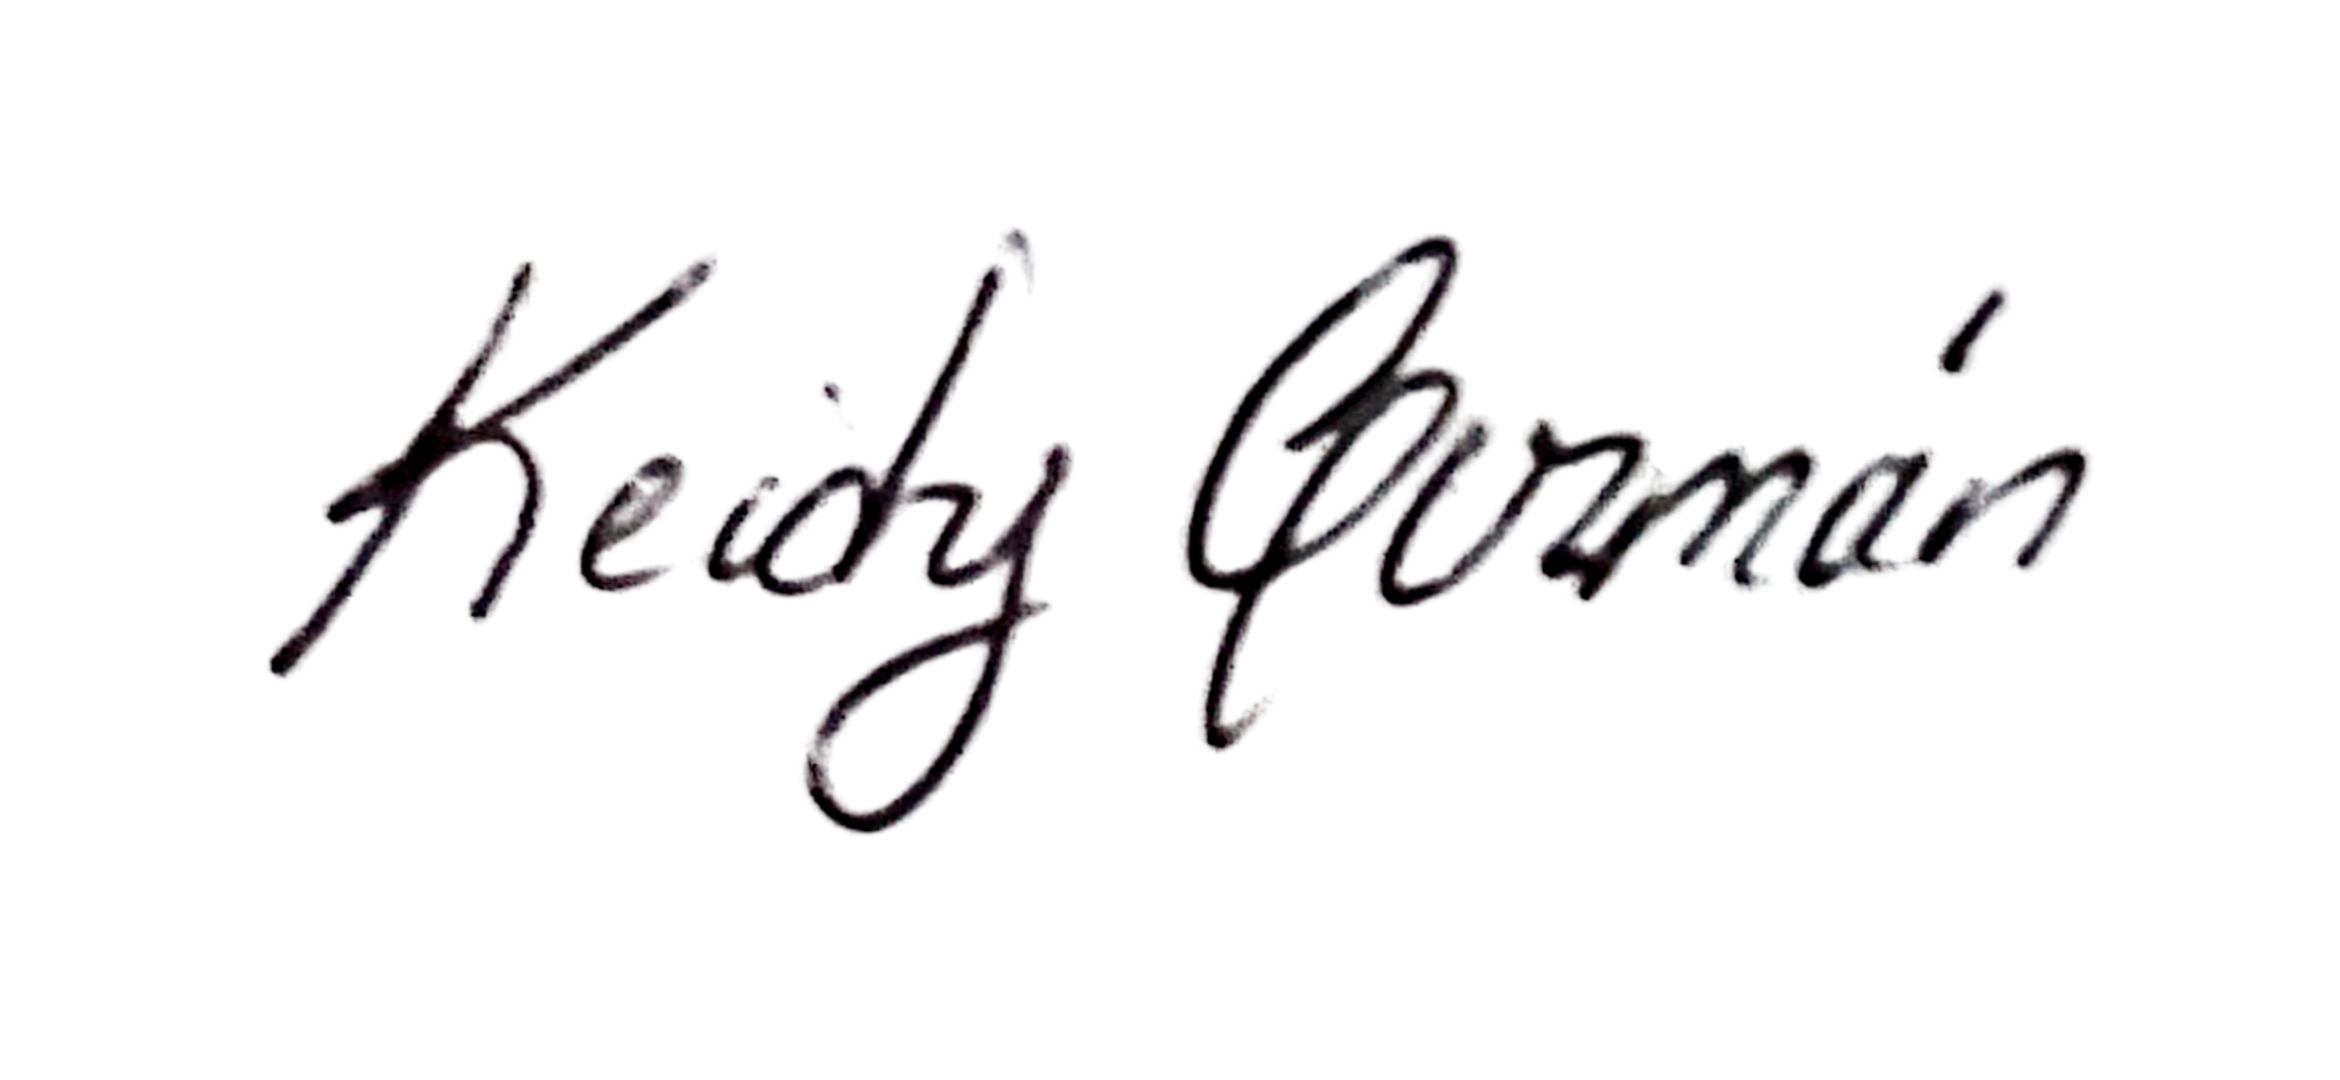 Keidy Guzmán